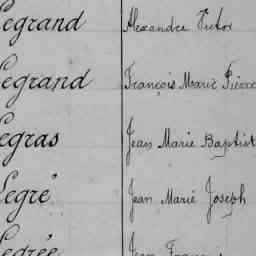 Legrand Alexandre Victor
Legrand François Marie Pierre
Legras Jean Marie Baptist
Legré Jean Marie Joseph
Legrée Jean François